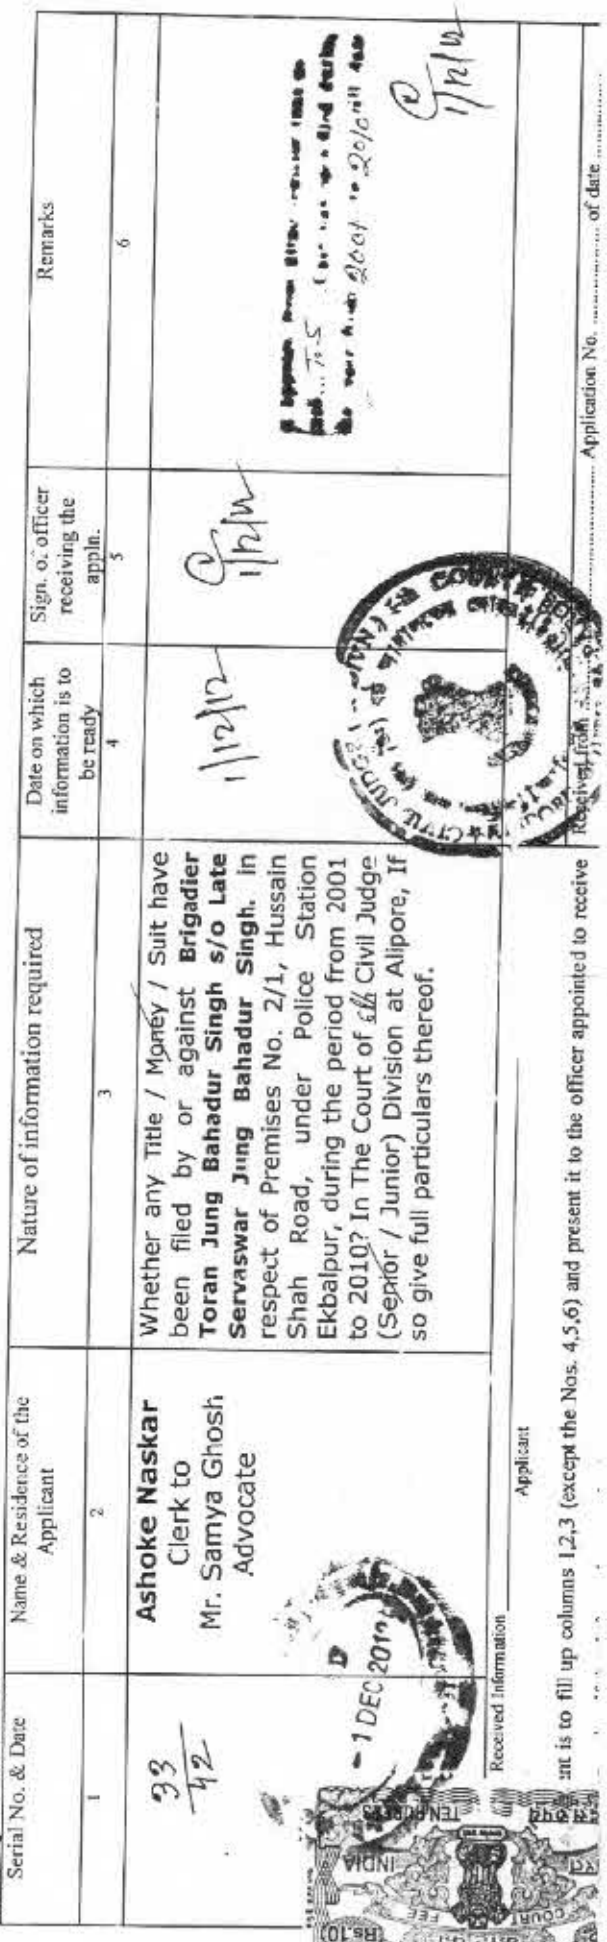 Serial No. & Date
Name & Residence of the
Applicant
Nature of information required
Date on which
information is to
be ready
Sign. of officer
receiving the
appln.
Remarks
1
2
3
4
5
6
33
42
Ashoke Naskar
Clerk to
Mr. Samya Ghosh
Advocate
Whether any Title / Money / Suit have
been filed by or against Brigadier
Toran Jung Bahadur Singh s/o Late
Servaswar Jung Bahadur Singh. in
respect of Premises No. 2/1, Hussain
Shah Road, under Police Station
Ekbalpur, during the period from 2001
to 2010? In The Court of 6th Civil Judge
(Senior / Junior) Division at Alipore, If
so give full particulars thereof.
1/12/12
1/12/12
T-5
2001 to 2010 till date
1/12/12
- 1 DEC 2012
CIVIL JUDGE
COURT
Received Information
Applicant
Received from
Application No.
of date
ent is to fill up columns 1,2,3 (except the Nos. 4,5,6) and present it to the officer appointed to receive
INDIA
TEN RUPEES
COURT FEE
(Rs.10)